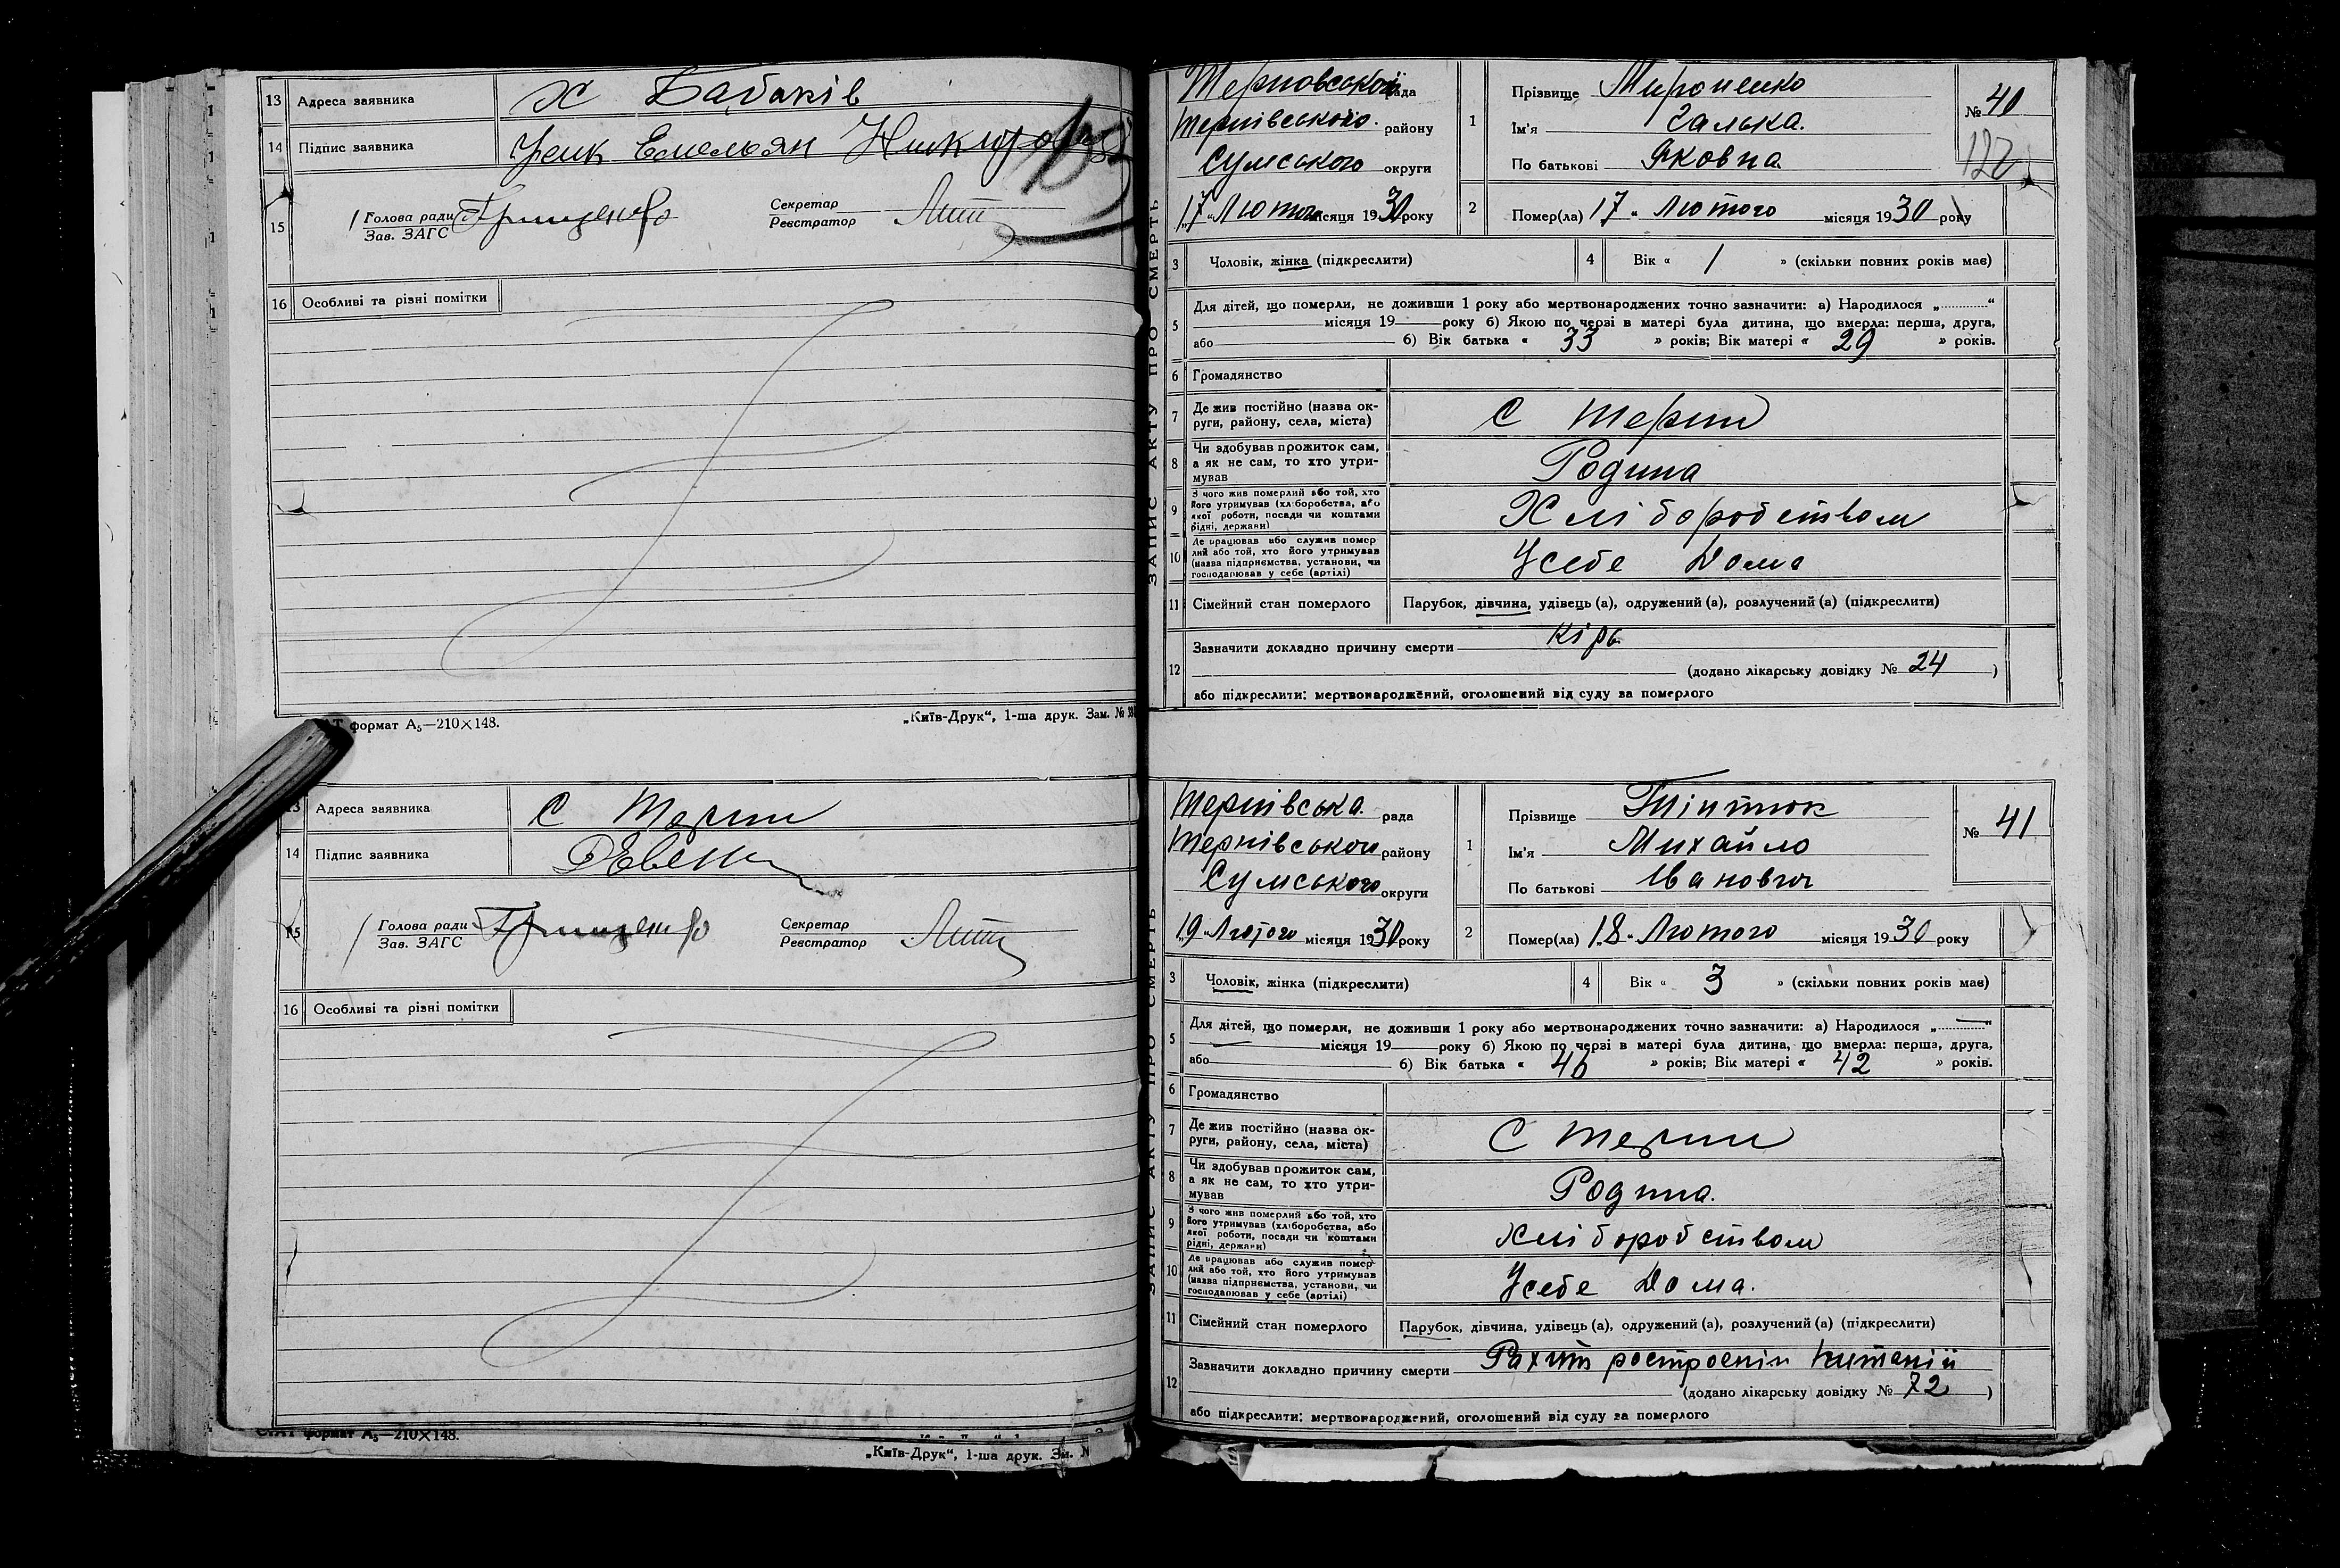 13 Адреса заявника Х Бабаків
14 Підпис заявника Емельян
15 Голова ради Грищенко Секретар
Зав. ЗАГС Реєстратор
16 Особливі та різні помітки
формат А₅—210×148. „Київ-Друк“, 1-ша друк. Зам. №
13 Адреса заявника С Терни
14 Підпис заявника
15 Голова ради Грищенко Секретар
Зав. ЗАГС Реєстратор
16 Особливі та різні помітки
СТАТ формат А₅—210×148.
„Київ-Друк“, 1-ша друк. Зам. №
ЗАПИС АКТУ ПРО СМЕРТЬ
Терновської рада
Тернівського району
Сумського округи
„17„ Лютого місяця 1930 року
1 Прізвище Мироненко
Ім'я Галька.
По батькові Яковна
№ 40
122
2 Помер(ла) 17 „ Лютого місяця 1930 року
3 Чоловік, жінка (підкреслити) 4 Вік « 1 » (скільки повних років має)
5 Для дітей, що померли, не доживши 1 року або мертвонароджених точно зазначити: а) Народилося „ “
місяця 19 року б) Якою по черзі в матері була дитина, що вмерла: перша, друга,
або б) Вік батька « 33 » років; Вік матері « 29 » років.
6 Громадянство
7 Де жив постійно (назва ок-
руги, району, села, міста) С Терни
8 Чи здобував прожиток сам,
а як не сам, то хто утри-
мував Родина
9 З чого жив померлий або той, хто
його утримував (хліборобства, або
якої роботи, посади чи коштами
рідні, держави) Хліборобством
10 Де працював або служив помер
лий або той, хто його утримував
(назва підприємства, установи, чи
господарював у себе (артілі) Усебе Дома
11 Сімейний стан померлого Парубок, дівчина, удівець (а), одружений (а), розлучений (а) (підкреслити)
12 Зазначити докладно причину смерти кірь
(додано лікарську довідку № 24 )
або підкреслити: мертвонароджений, оголошений від суду за померлого
ЗАПИС АКТУ ПРО СМЕРТЬ
Тернівська. рада
Тернівського району
Сумського округи
„19„ Лютого місяця 1930 року
1 Прізвище Тіптюк
Ім'я Михайло
По батькові Іванович
№ 41
2 Помер(ла) „18„ Лютого місяця 1930 року
3 Чоловік, жінка (підкреслити) 4 Вік « 3 » (скільки повних років має)
5 Для дітей, що померли, не доживши 1 року або мертвонароджених точно зазначити: а) Народилося „ “
місяця 19 року б) Якою по черзі в матері була дитина, що вмерла: перша, друга,
або б) Вік батька « 46 » років; Вік матері « 42 » років.
6 Громадянство
7 Де жив постійно (назва ок-
руги, району, села, міста) С Терни
8 Чи здобував прожиток сам,
а як не сам, то хто утри-
мував Родина.
9 З чого жив померлий або той, хто
його утримував (хліборобства, або
якої роботи, посади чи коштами
рідні, держави) Хліборобством
10 Де працював або служив помер
лий або той, хто його утримував
(назва підприємства, установи, чи
господарював у себе (артілі) Усебе Дома.
11 Сімейний стан померлого Парубок, дівчина, удівець (а), одружений (а), розлучений (а) (підкреслити)
12 Зазначити докладно причину смерти Рахіт
(додано лікарську довідку № 72 )
або підкреслити: мертвонароджений, оголошений від суду за померлого